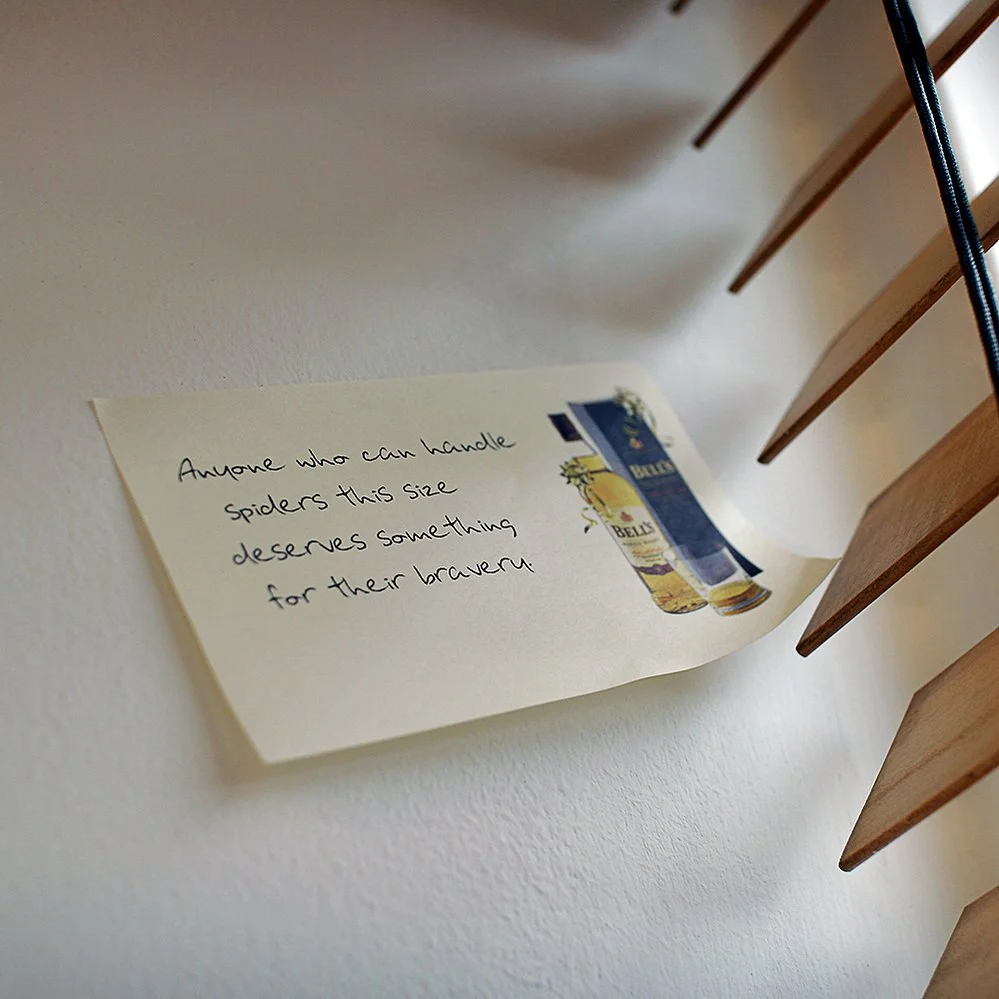 Anyone who can handle
spiders this size
deserves something
for their bravery.
BELL'S
BELL'S